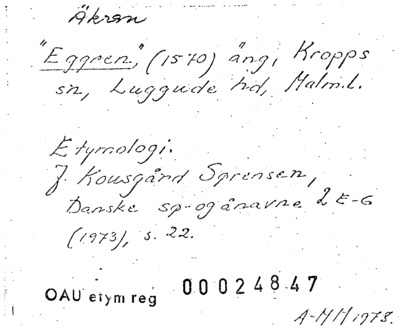 Äkren
"Eggren," (1570) äng, Kropps
sn, Luggude hd, Malm.l.
Etymologi.
J. Kousgård Sørensen,
Danske sø- og ånavne 2 E-G
(1973), s. 22.
OAU etym reg 00024847
A-MH 1973.